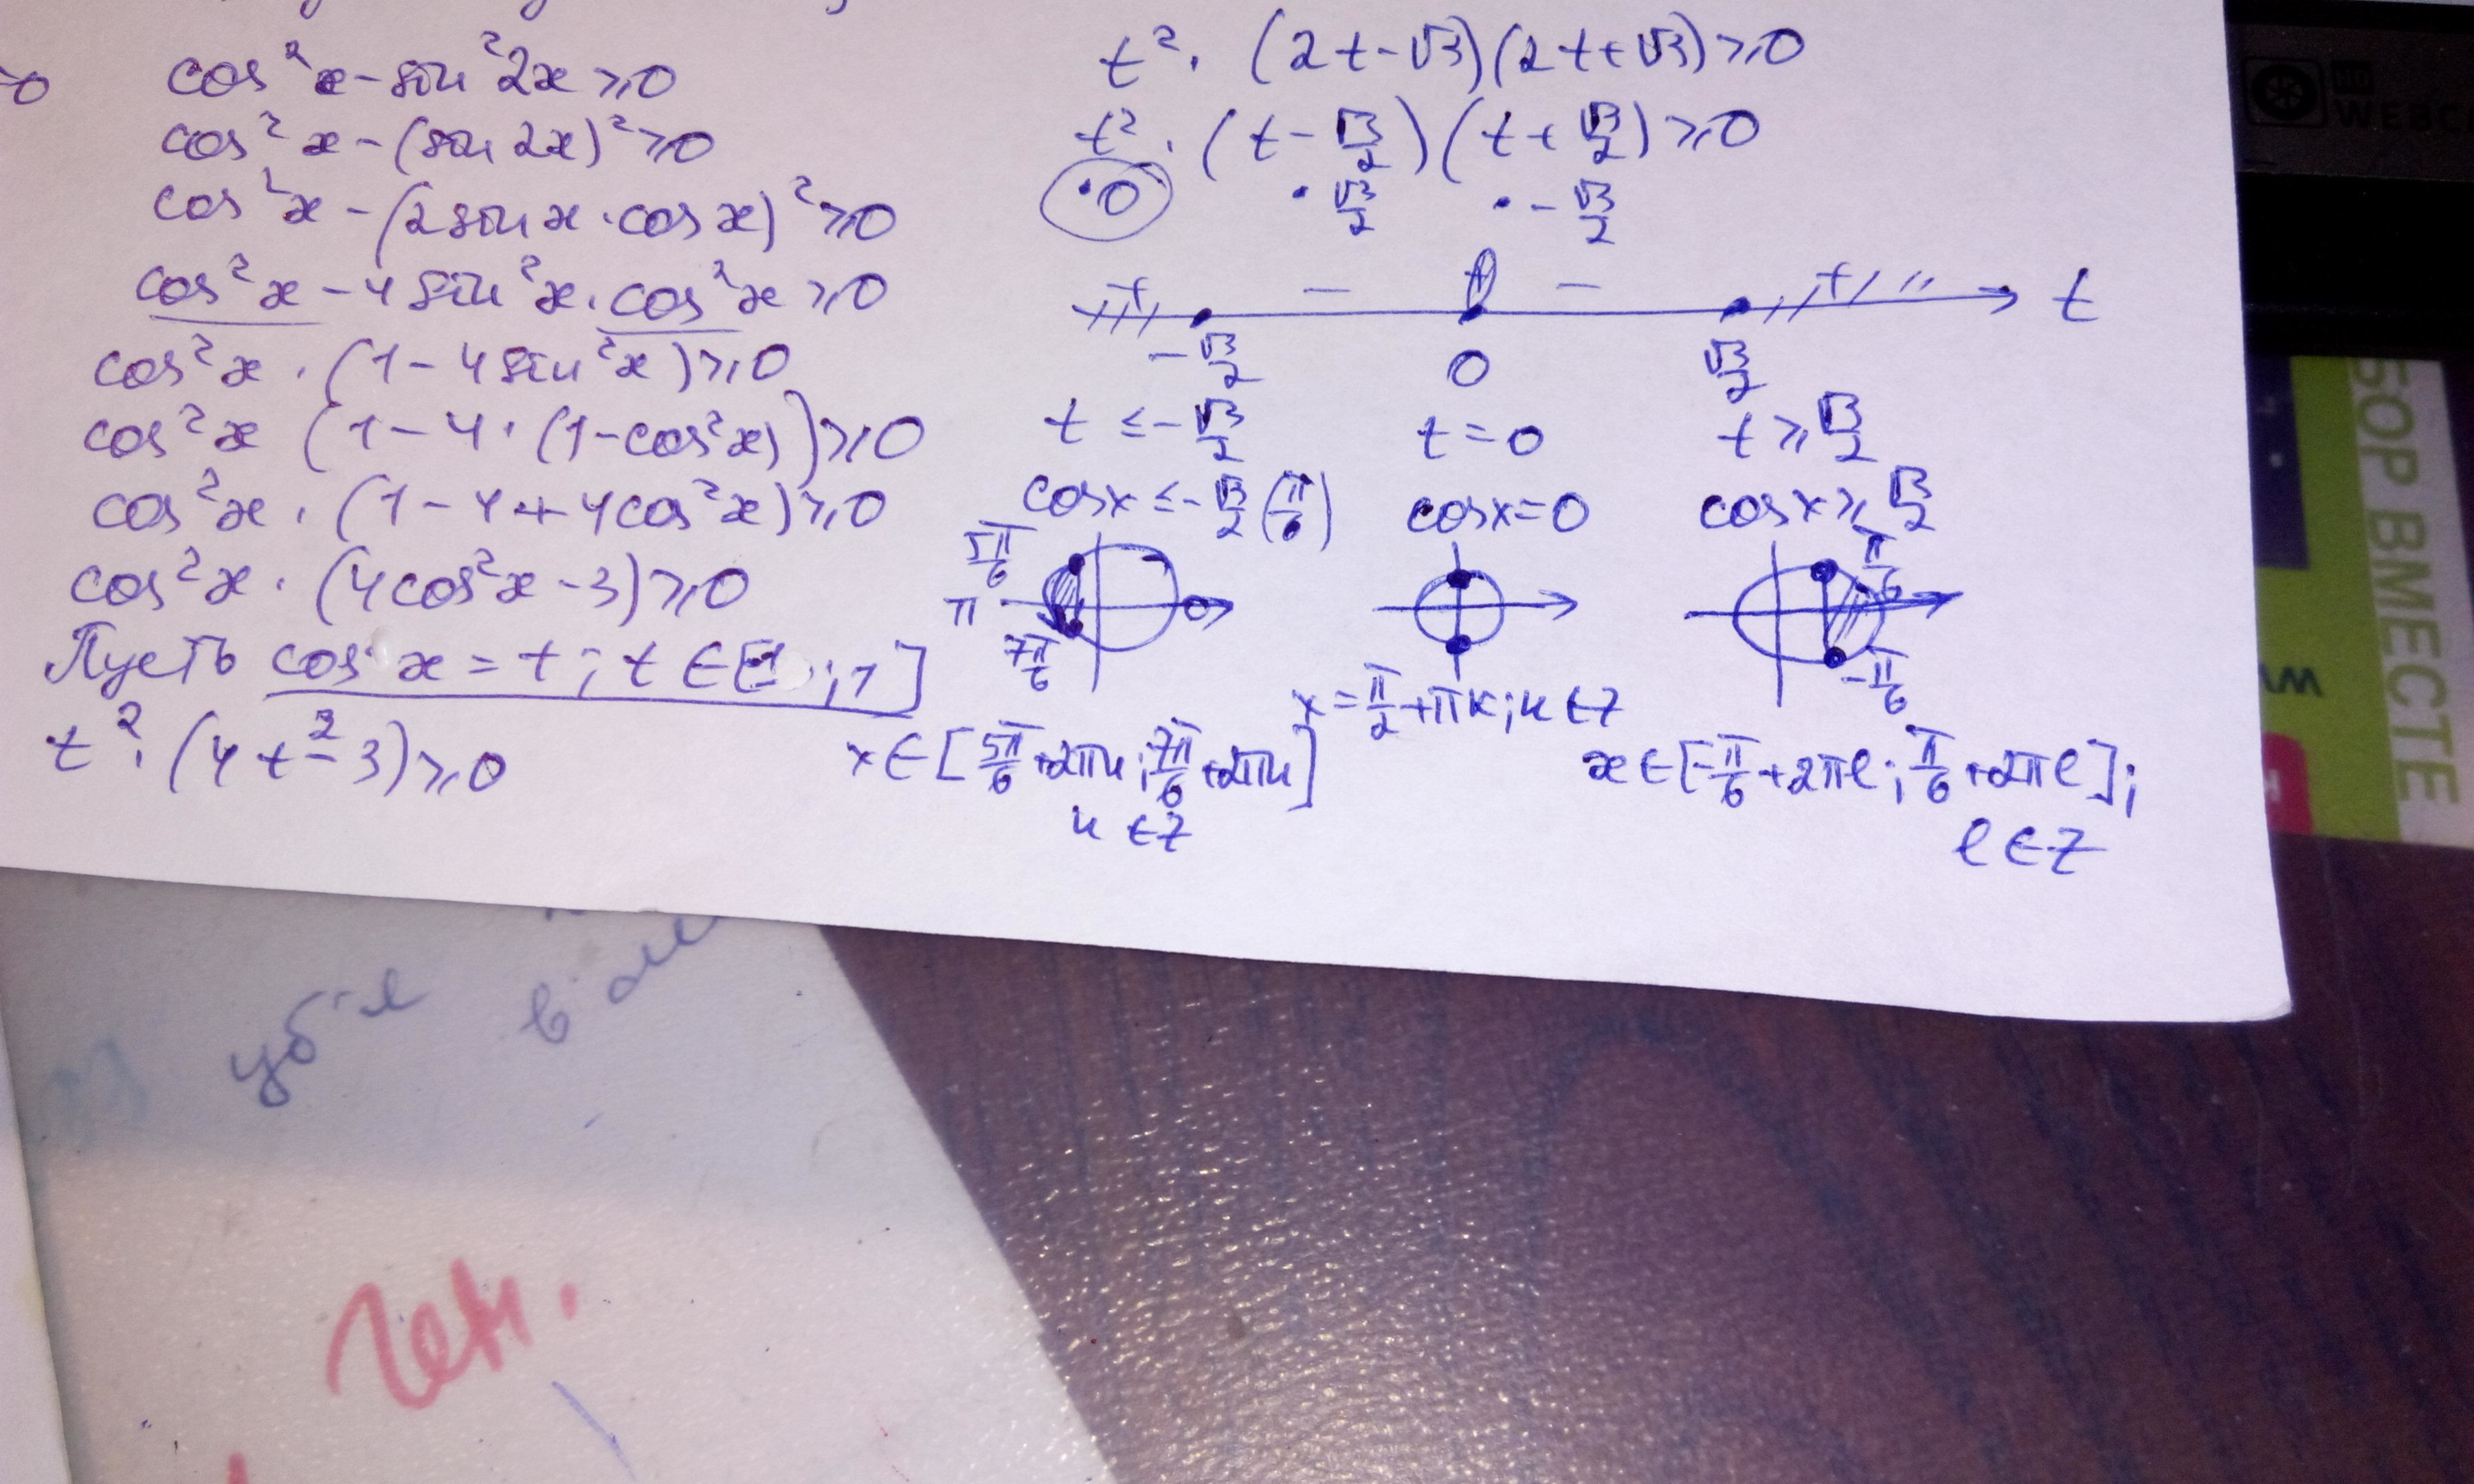 cos²x - sin²2x ⩾ 0
cos²x - (sin 2x)² ⩾ 0
cos²x - (2 sin x · cos x)² ⩾ 0
cos²x - 4 sin²x · cos²x ⩾ 0
cos²x · (1 - 4 sin²x) ⩾ 0
cos²x (1 - 4 · (1 - cos²x)) ⩾ 0
cos²x · (1 - 4 + 4cos²x) ⩾ 0
cos²x · (4cos²x - 3) ⩾ 0
Пусть cos x = t; t ∈ [-1; 1]
t² · (4t² - 3) ⩾ 0
t² · (2t - √3)(2t + √3) ⩾ 0
t² · (t - √3/2)(t + √3/2) ⩾ 0
· 0 · √3/2 · - √3/2
+ - - + t
- √3/2 0 √3/2
t ≤ - √3/2 t = 0 t ⩾ √3/2
cosx ≤ - √3/2 (π/6) cosx = 0 cosx ⩾ √3/2
5π/6 π/6
π 0
7π/6 - π/6
x = π/2 + πk; k ∈ Z
x ∈ [5π/6 + 2πn; 7π/6 + 2πn] x ∈ [-π/6 + 2πl; π/6 + 2πl];
n ∈ Z l ∈ Z
WEBC
БОР ВМЕСТЕ
уб-е
в